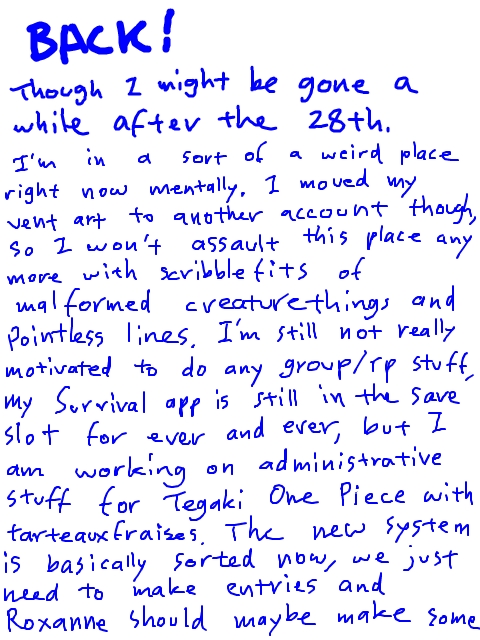 BACK!
Though I might be gone a
while after the 28th.
I'm in a sort of a weird place
right now mentally. I moved my
vent art to another account though,
so I won't assault this place any
more with scribblefits of
malformed creaturethings and
pointless lines. I'm still not really
motivated to do any group/rp stuff,
my Survival app is still in the save
slot for ever and ever, but I
am working on administrative
stuff for Tegaki One Piece with
tarteauxfraises. The new system
is basically sorted now, we just
need to make entries and
Roxanne should maybe make some